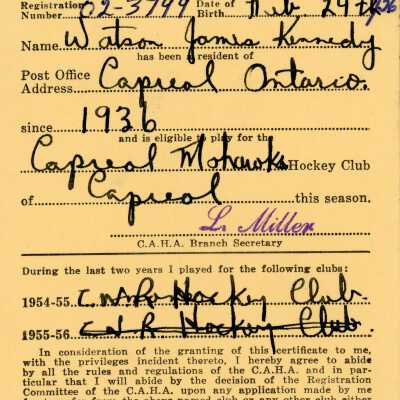 Registration Number 02-3799 Date of Birth Feb 29th
Name Watson James Kennedy
has been a resident of
Post Office Address Capreol Ontario.
since 1936
and is eligible to play for the
Capreol Mohawks Hockey Club
of Capreol this season.
L. Miller
C.A.H.A. Branch Secretary
During the last two years I played for the following clubs:
1954-55. C.N.R. Hockey Club.
1955-56. C.N.R. Hockey Club.
In consideration of the granting of this certificate to me,
with the privileges incident thereto, I hereby agree to abide
by all the rules and regulations of the C.A.H.A. and in par-
ticular that I will abide by the decision of the Registration
Committee of the C.A.H.A. upon any application made by me